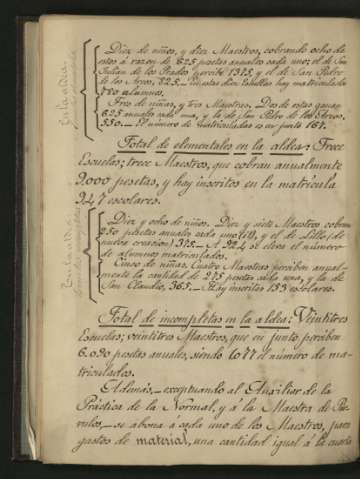 Diez de niños, y diez Maestros, cobrando ocho de
estos á razon de 625 pesetas anuales cada uno; el de San
Julian de los Prados percibe 1375, y el de San Pedro
de los Arcos, 825.— En estas diez Escuelas hay matriculados
780 alumnos.
Tres de niñas, y tres Maestras. Dos de estas ganan
625 anuales cada una, y la de San Pedro de los Arcos,
550.— El número de matriculadas es en junto 167.
Total de elementales en la aldea: Trece
Escuelas; trece Maestros, que cobran anualmente
9.000 pesetas, y hay inscritos en la matrícula
947 escolares.
Diez y ocho de niños. Diez y siete Maestros cobran
250 pesetas anuales cada uno, y el de
nueva creacion) 375.— A 924 se eleva el número
de alumnos matriculados.
Cinco de niñas. Cuatro Maestras perciben anual-
mente la cantidad de 275 pesetas cada una, y la de
San Claudio, 365.— Hay inscritas 153 escolares.
Total de incompletas en la aldea: Veintitres
Escuelas; veintitres Maestros, que en junto perciben
6.090 pesetas anuales, siendo 1077 el número de ma-
triculados.
Además,— exceptuando al Auxiliar de la
Práctica de la Normal, y á la Maestra de Pár-
vulos,— se abona á cada uno de los Maestros, para
gastos de material, una cantidad igual á la cuarta
En la aldea